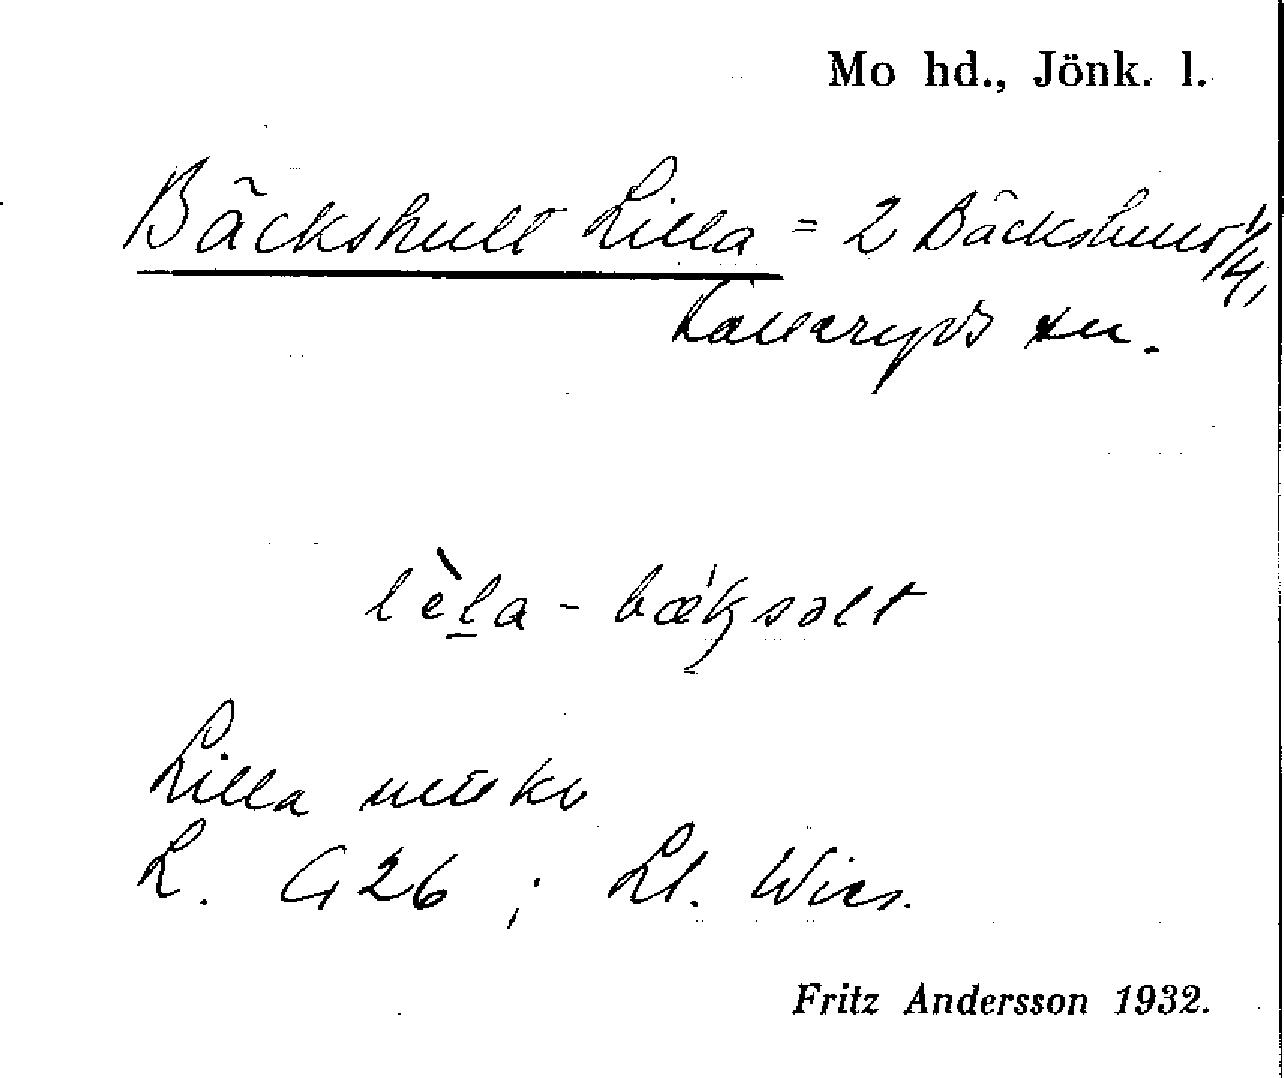 Mo hd., Jönk. l.
Bäckshult Lilla = 2 Bäckshult 1/4,
Källeryds sn.
lèla - bæksəlt
Lilla utskr
L. G 26 ; Ll. Wies.
Fritz Andersson 1932.